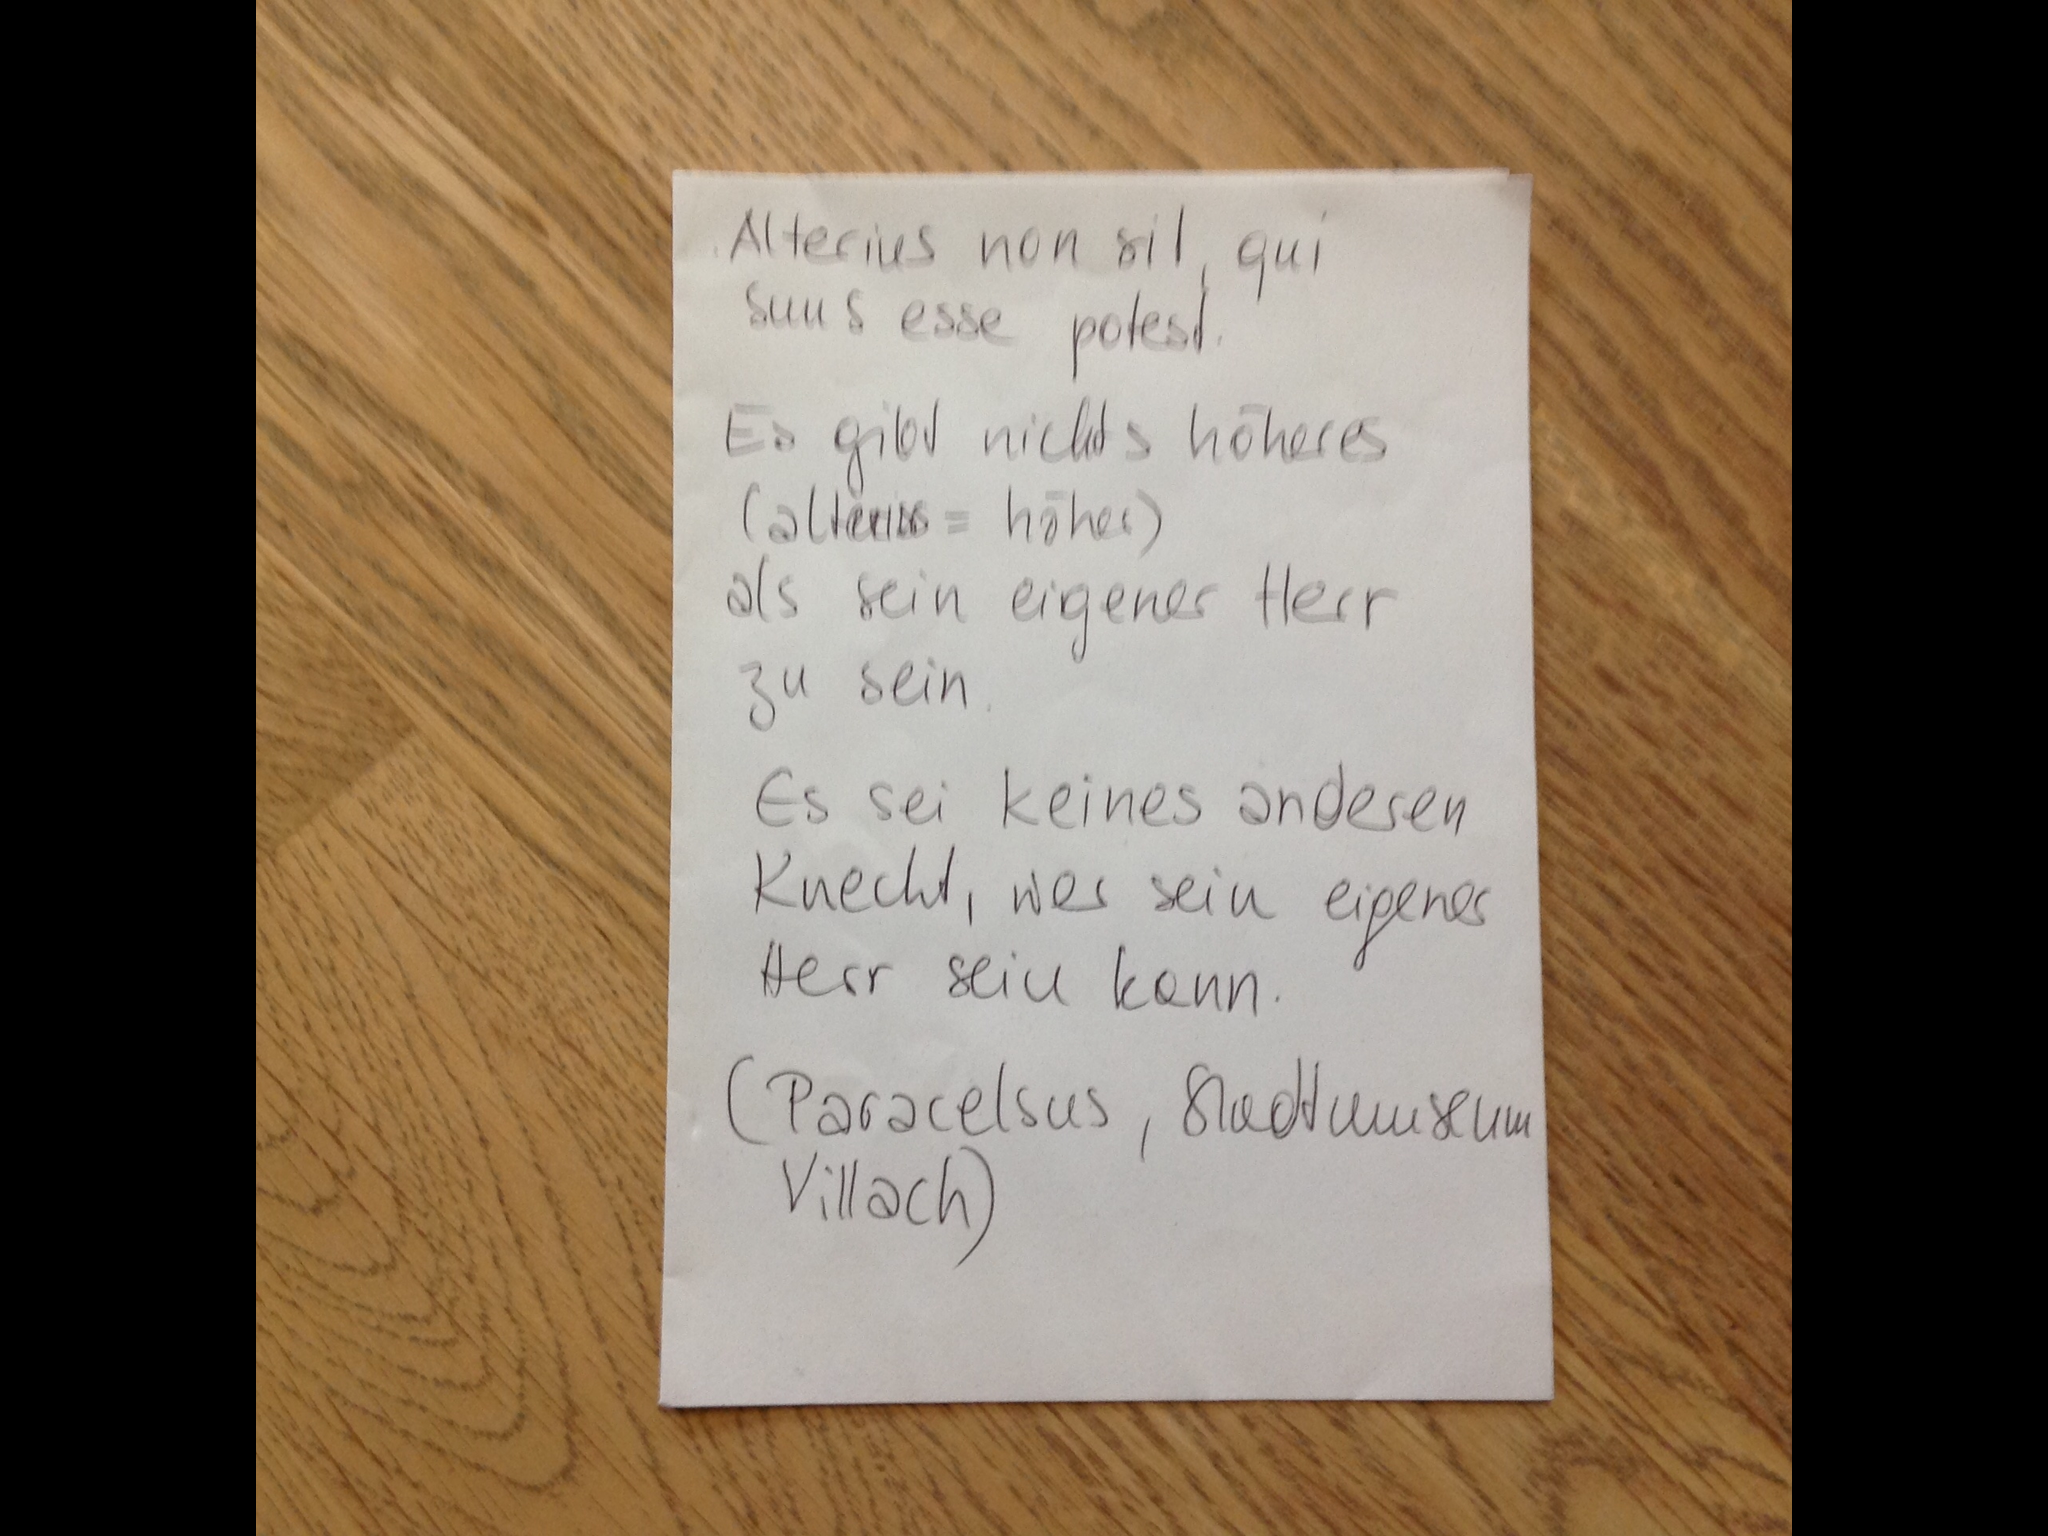 Alterius non sit, qui
suus esse potest.
Es gibt nichts höheres
(alterius = höher)
als sein eigener Herr
zu sein.
Es sei keines anderen
Knecht, wer sein eigener
Herr sein kann.
(Paracelsus, Stadtmuseum
Villach)